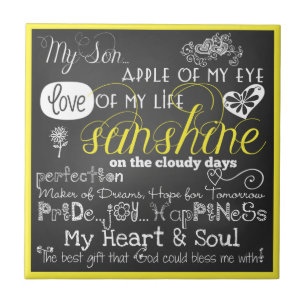 My Son...
APPLE OF MY EYE
love OF MY LIFE
sunshine
on the cloudy days
perfection
Maker of Dreams, Hope for Tomorrow
PRiDe...JOY...HAPPiNeSS
My Heart & Soul
The best gift that God could bless me with!